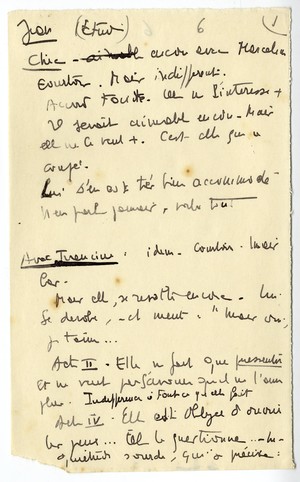 Jean (Étud) 6 1
Chic - aimable encore avec Marceline
Courtois. Mais indifférent.
Avant Elle ne l'intéresse +
Il serait aimable encore. Mais
elle ne le veut +. C'est elle qui a
coupé.
Lui s'en est très bien accommodé
N'en parle jamais, voilà tout
Avec Francine, idem. Courtois. Mais
las.
Mais elle, se révolte encore. Lui
se dérobe, et ment. "Mais oui,
je t'aime...
Act II. Elle ne fait que pressentir
Et ne veut pas savoir qu'il ne l'aime
plus. Indifférence à tout ce qu'elle fait
Act IV. Elle est obligée d'ouvrir
les yeux... Elle le questionne...
inquiétude sourde, qui se précise :